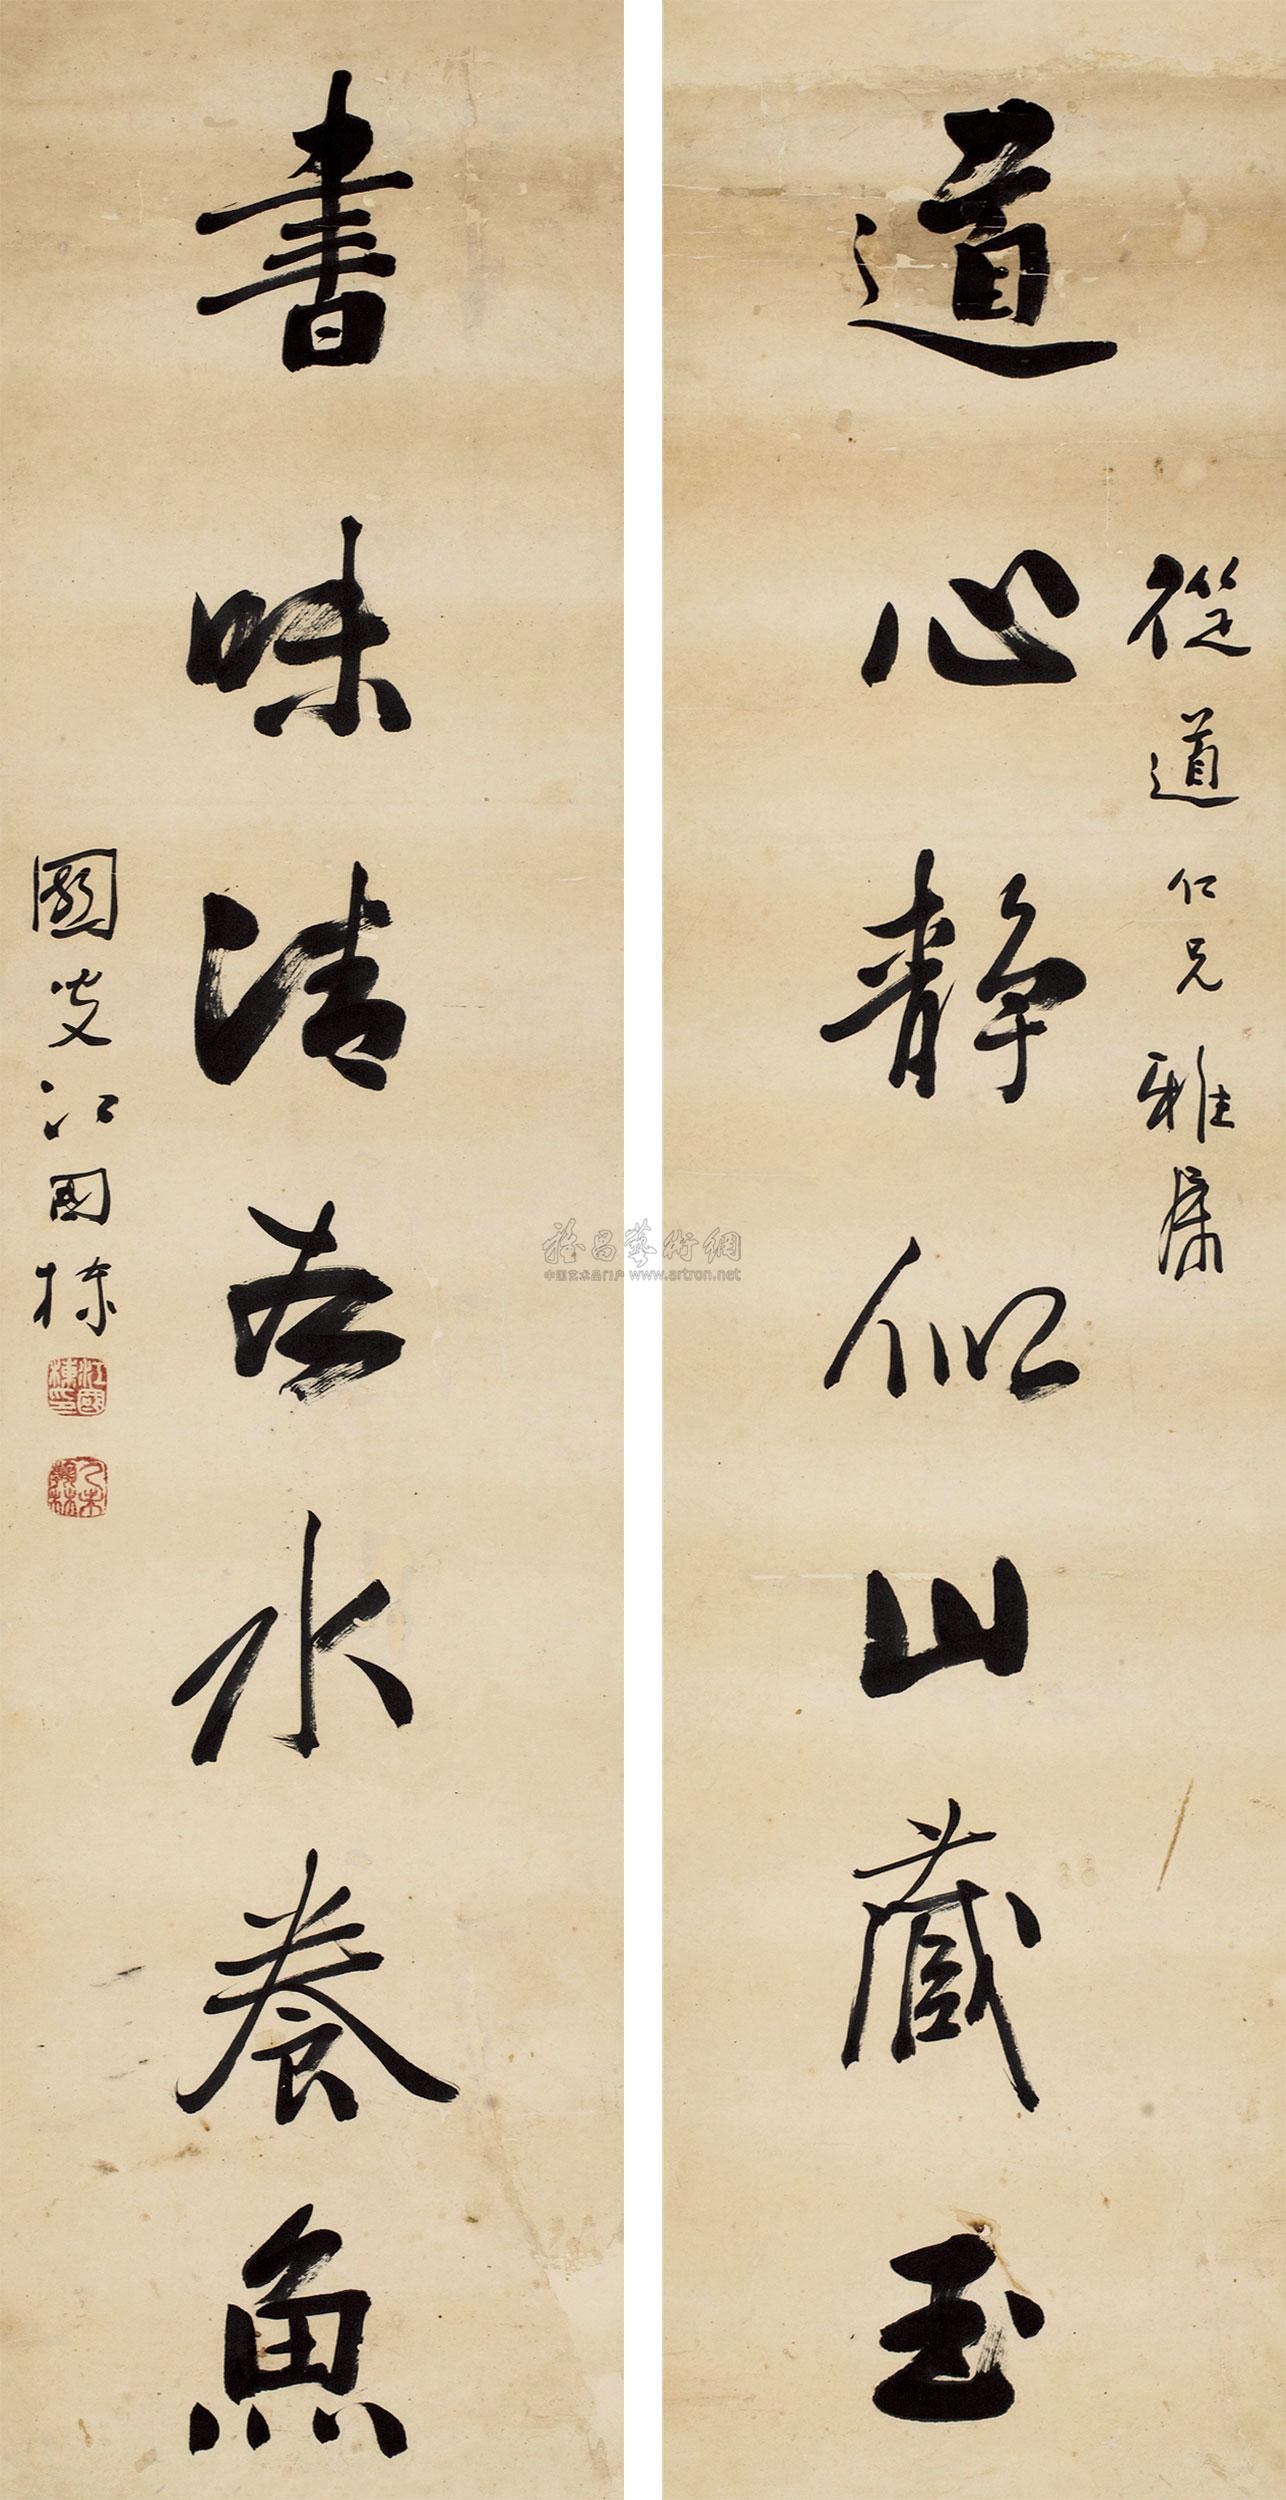 道心静似山藏玉
從道仁兄雅屬
書味清於水養魚
園叟江国棟
江國棟印
雅昌藝術網
中国艺术品门户 www.artron.net